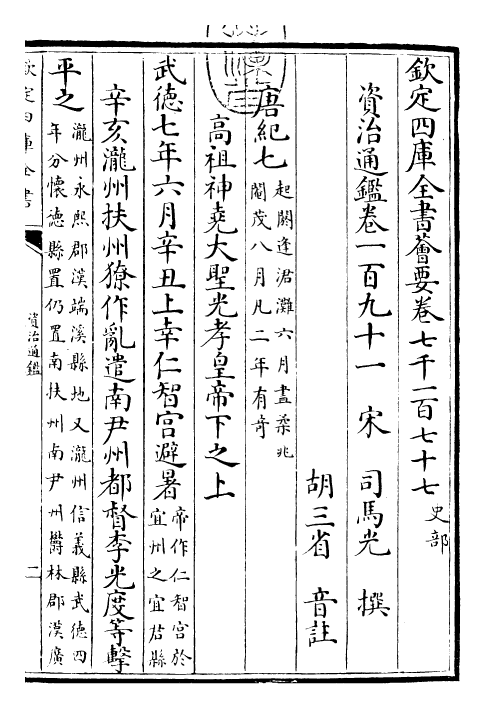 欽定四庫全書薈要卷七千一百七十七 史部
資治通鑑卷一百九十一 宋 司馬光 撰
胡三省 音註
唐紀七 起閼逢涒灘六月盡柔兆
閹茂八月凡二年有奇
高祖神堯大聖光孝皇帝下之上
武德七年六月辛丑上幸仁智宮避暑 帝作仁智宮於
宜州之宜君縣
辛亥瀧州扶州獠作亂遣南尹州都督李光度等擊
平之 瀧州永熙郡漢端溪縣地又瀧州信義縣武德四
年分懷德縣置仍置南扶州南尹州欎林郡漢廣
欽定四庫全書
資治通鑑